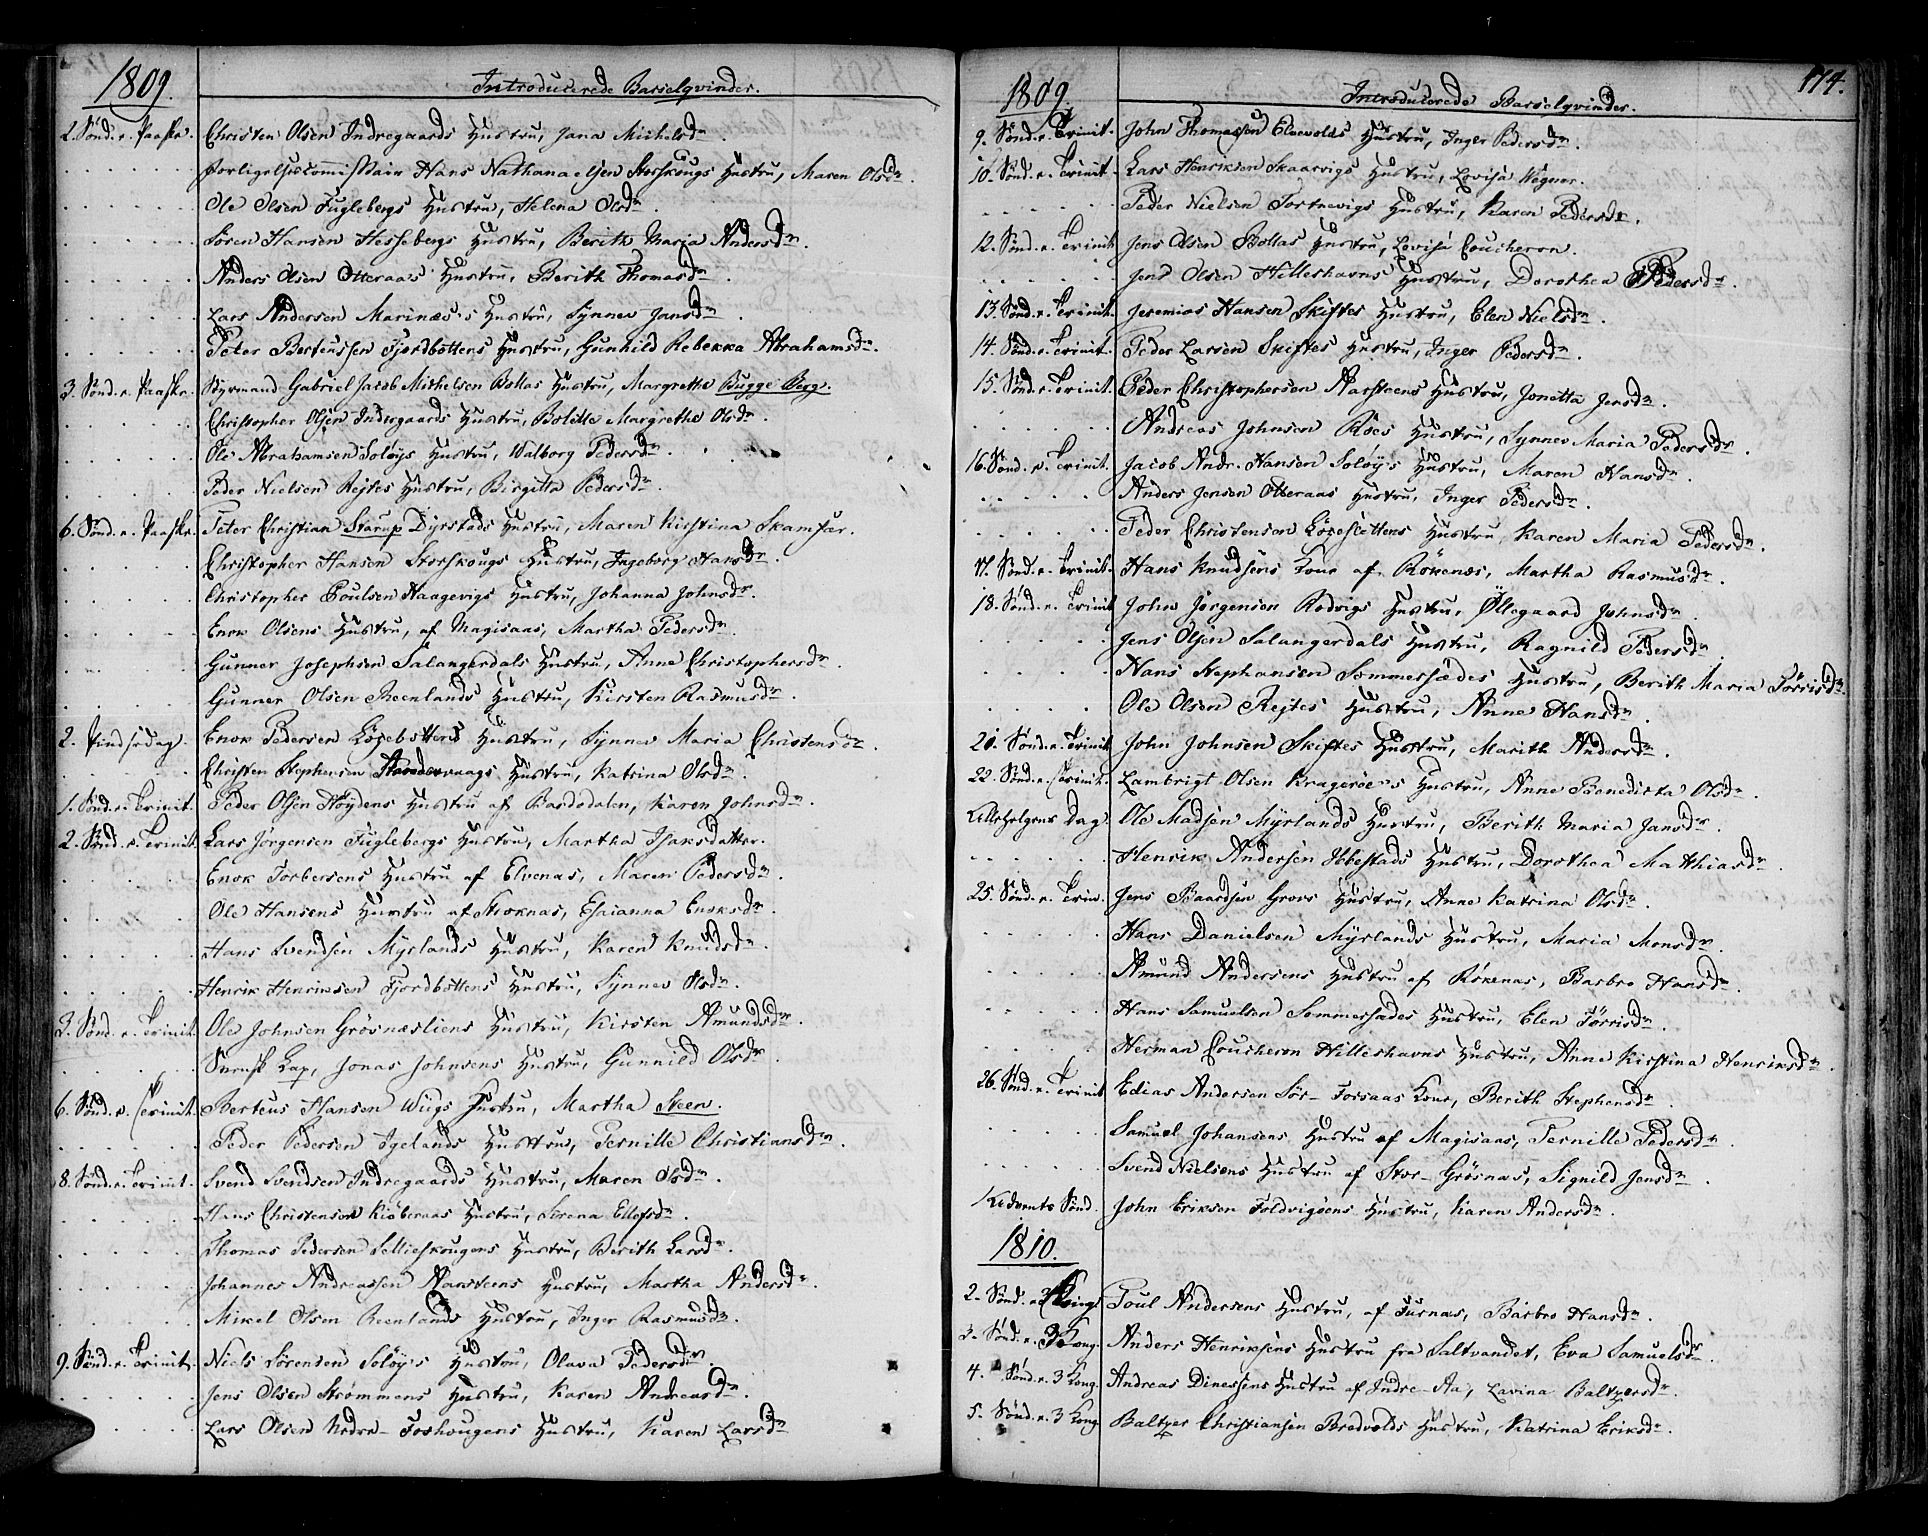 1809.
Introducerede Barselqvinder.
2. Sönd. e. Paaske. Christen Olsen Indregaards Hustru, Jana Michelsdr.
Forligelsescommissair Hans Nathanaelsen Storskougs Hustru, Maren Olsdr.
Ole Olsen Fuglebergs Hustru, Helena Olsdr.
Sören Hansen Hessebergs Hustru, Berith Maria Andersdr.
Anders Olsen Otteraas Hustru, Berith Thomasdr.
Lars Andersen Marinæs's Hustru, Synnev Jonsdr.
Peter Berteussen Fjordbottens Hustru, Gunhild Rebekka Abrahamsdr.
3. Sönd. e. Paaske. Styrmand Gabriel Jacob Michelsen Bollas Hustru, Margrethe Bugge Berg.
Christopher Olsen Indergaards Hustru, Bolitte Margrethe Olsdr.
Ole Abrahamsen Soløys Hustru, Walborg Pedersdr.
Peder Nielsen Rejtes Hustru, Birgitta Pedersdr.
6. Sönd. e. Paaske. Peter Christian Starup Dyrstads Hustru, Maren Kirstina Skamfær.
Christopher Hansen Storskougs Hustru, Ingeborg Hansdr.
Christopher Poulsen Haagevigs Hustru, Johanna Johnsdr.
Enok Olsens Hustru, af Magisaas, Martha Pedersdr.
Gunner Josephsen Salangerdals Hustru, Anne Christophersdr.
Gunner Olsen Reenlands Hustru, Kirsten Rasmusdr.
2. Pindsedag. Enok Pedersen Löksebottens Hustru, Synnev Maria Christensdr.
Christen Stephensen Hustru, Katrina Olsdr.
1. Sönd. e. Trinit. Peder Olsen Höydens Hustru af Bardodalen, Karen Johnsdr.
2. Sönd. e. Trinit. Lars Jørgensen Fuglebergs Hustru, Martha Isaksdatter.
Enok Torbersens Hustru af Elvenæs, Maren Pedersdr.
Ole Hansens Hustru af Stroknæs, Esaianna Enoksdr.
Hans Svendsen Myrlands Hustru, Karen Knudsdr.
Henrik Henriksen Fjordbottens Hustru, Synnev Olsdr.
3. Sönd. e. Trinit. Ole Johnsen Grösnæsliens Hustru, Kirsten Amundsdr.
Svensk Lap, Jonas Johnsens Hustru, Gunnild Olsdr.
6. Sönd. e. Trinit. Berteus Hansen Wiigs Hustru, Martha Steen.
Peder Pedersen Igelands Hustrue, Pernille Christiansdr.
8. Sönd. e. Trinit. Svend Svendsen Indregaards Hustru, Maren Olsdr.
Hans Christensen Kiöberaas Hustru, Sirena Ellefsdr.
Thomas Pedersen Selliеskougens Hustru, Berith Larsdr.
Johannes Andreassen Narsteens Hustru, Martha Andersdr.
Mikel Olsen Reenlands Hustru, Inger Rasmusdr.
9. Sönd. e. Trinit. Niels Sörensen Soløy's Hustru, Olava Pedersdr.
Jens Olsen Strømmens Hustru, Karen Andreasdr.
Lars Olsen Nedre-Foshougens Hustru, Karen Larsdr
174.
1809.
Introducerede Barselqvinder.
9. Sönd. e. Trinit. John Thomassen Elvevolds Hustru, Inger Pedersdr.
10. Sönd. e. Trinit. Lars Henriksen Skaarvigs Hustru, Lovisa Wegner.
Peder Nielsen Tortnevigs Hustru, Karen Pedersdr.
12. Sönd. e. Trinit Jens Olsen Bollas Hustru, Lovisa Coucheron.
Jens Olsen Hilleshavns Hustru, Dorothea Pedersdr.
13. Sönd. e. Trinit. Jeremias Hansen Skiftes Hustru, Elen Nielsdr.
14. Sönd. e. Trinit. Peder Larsen Skiftes Hustru, Inger Pedersdr.
15. Sönd. e. Trinit. Peder Christophersen Narsteens Hustru, Jonetta Jensdr.
Andreas Johnsen Röes Hustru, Synnev Maria Pedersdr.
16. Sönd. e. Trinit. Jacob Andr. Hansen Soløy's Hustru, Maren Hansdr.
Anders Jensen Otteraas Hustru, Inger Pedersdr.
Peder Christensen Löksletten​s Hustru, Karen Maria Pedersdr.
17. Sönd. e. Trinit. Hans Knudsens Kone af Rökenæs, Martha Rasmusdr.
18. Sönd. e. Trinit John Jørgensen Rodvigs Hustru, Øllegaard Johnsdr.
Jens Olsen Salangerdals Hustru, Ragnild Pedersdr.
Hans Stephansen Sommersædes Hustru, Berith Maria Törrisdr.
Ole Olsen Rejtes Hustru, Anne Hansdr.
20. Sönd. e. Trinit John Johnsen Skiftes Hustru, Marith Andersdr.
22. Sönd. e. Trinit. Lambrigt Olsen Kragerøe's Hustru, Anne Benedicta Olsdr.
Allehelgens Dag. Ole Madsen Myrlands Hustru, Berith Maria Jansdr.
Henrik Andersen Ibbestads Hustru, Dorothea Matthiasdr.
25. Sönd. e. Trin. Jens Baardsen Grovs Hustru, Anne Katrina Olsdr.
Hans Danielsen Myrlands Hustru, Maria Monsdr.
Amund Andersens Hustru af Rökenæs, Barbro Hansdr.
Hans Samuelsen Sommersædes Hustru, Elen Törrisdr.
Herman Coucheron Hilleshavns Hustru, Anne Kirstina Henriksdr.
26. Sönd. e. Trinit Edias Andersen Sör-Forsaas Kone, Berith Stephensdr.
Samuel Johansens Hustru af Magisaas, Pernille Pedersdr.
Svend Nielsens Hustru af Stor-Grösnæs, Signild Jensdr.
1 Advents Sönd. John Eriksen Foldvigöens Hustru, Karen Andersdr.
1810.
2. Sönd. e. 3 Kong. Poul Andersens Hustru, af Furnæs, Barbro Hansdr.
3. Sönd. e. 3 Kong. Anders Henriksens Hustru fra Saltvandet, Eva Samuelsdr.
4. Sönd. e. 3 Kong. Andreas Dinessens Hustru af Indre-Aa, Lavina Baltzersdr.
5. Sönd. e. 3 Kong. Baltzer Christiansen Bredvolds Hustru, Katrina Eriksdr.